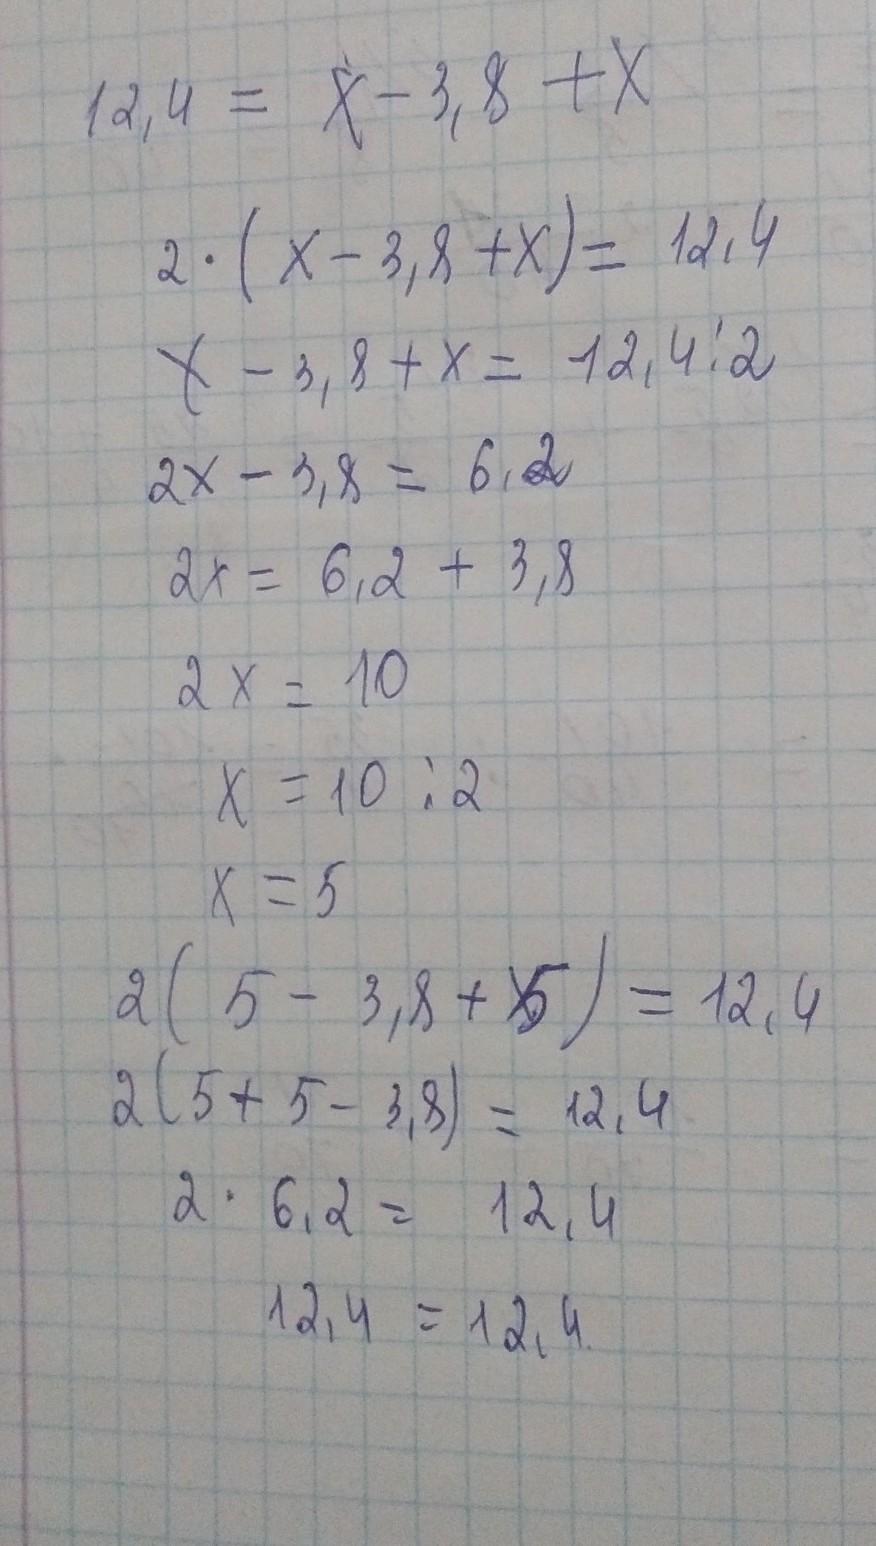 12,4 = x - 3,8 + x
2 · ( x - 3,8 + x ) = 12,4
x - 3,8 + x = 12,4 : 2
2x - 3,8 = 6,2
2x = 6,2 + 3,8
2x = 10
x = 10 : 2
x = 5
2 ( 5 - 3,8 + 5 ) = 12,4
2 ( 5 + 5 - 3,8 ) = 12,4
2 · 6,2 = 12,4
12,4 = 12,4